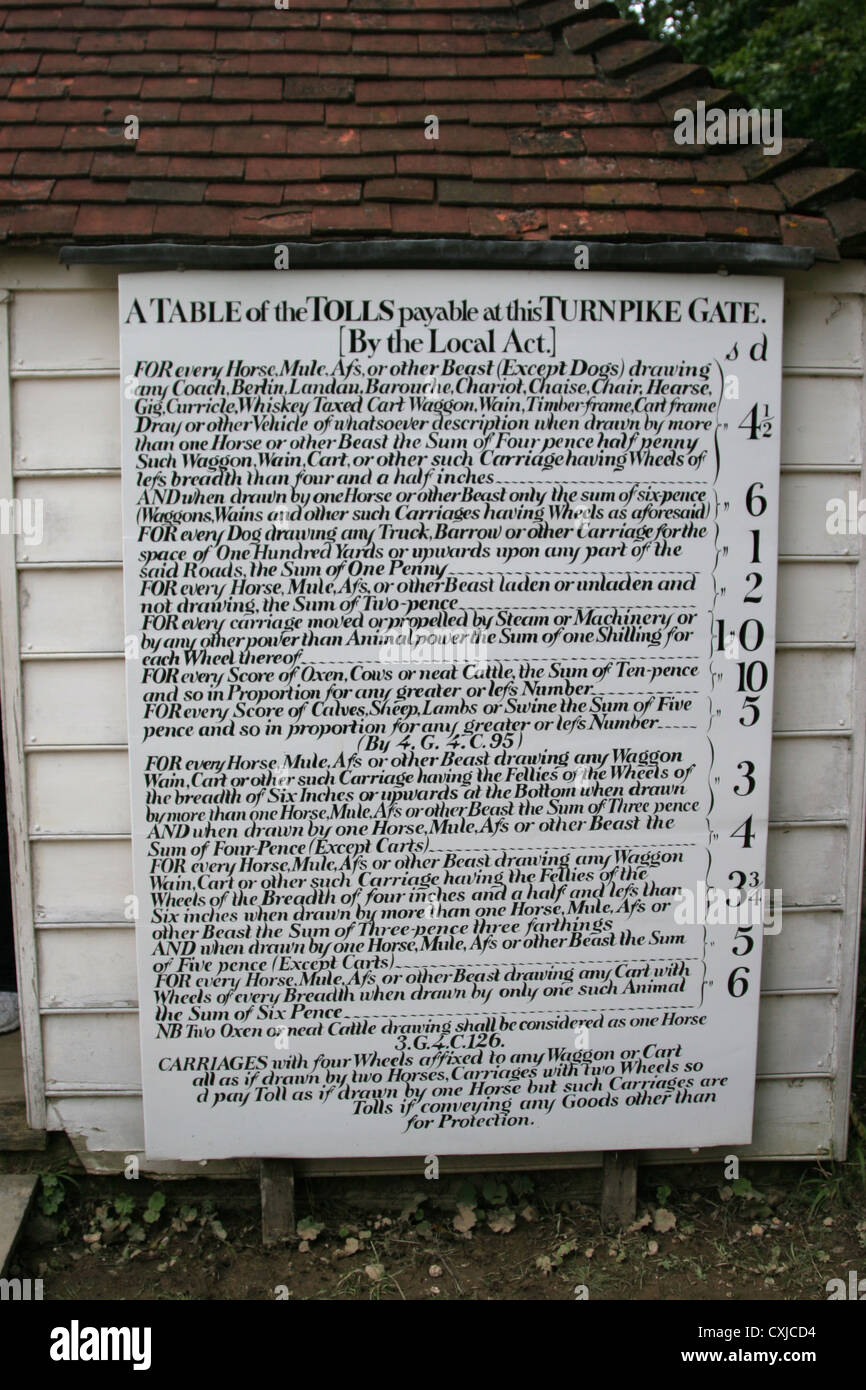 A TABLE of the TOLLS payable at this TURNPIKE GATE.
[By the Local Act.]
s d
FOR every Horse, Mule, Afs, or other Beast (Except Dogs) drawing
any Coach, Berlin, Landau, Barouche, Chariot, Chaise, Chair, Hearse,
Gig, Curricle, Whiskey Taxed Cart Waggon, Wain, Timber-frame, Cart frame
Dray or other Vehicle of whatsoever description when drawn by more " 4½
than one Horse or other Beast the Sum of Four pence half penny
Such Waggon, Wain, Cart, or other such Carriage having Wheels of
lefs breadth than four and a half inches
AND when drawn by one Horse or other Beast only the sum of six-pence " 6
(Waggons, Wains and other such Carriages having Wheels as aforesaid)
FOR every Dog drawing any Truck, Barrow or other Carriage for the
space of One Hundred Yards or upwards upon any part of the " 1
said Roads, the Sum of One Penny
FOR every Horse, Mule, Afs, or other Beast laden or unladen and " 2
not drawing, the Sum of Two-pence
FOR every carriage moved or propelled by Steam or Machinery or
by any other power than Animal power the Sum of one Shilling for 1"0
each Wheel thereof
FOR every Score of Oxen, Cows or neat Cattle, the Sum of Ten-pence " 10
and so in Proportion for any greater or lefs Number
FOR every Score of Calves, Sheep, Lambs or Swine the Sum of Five " 5
pence and so in proportion for any greater or lefs Number
(By 4. G. 4. C. 95)
FOR every Horse, Mule, Afs or other Beast drawing any Waggon
Wain, Cart or other such Carriage having the Fellies of the Wheels of " 3
the breadth of Six Inches or upwards at the Bottom when drawn
by more than one Horse, Mule, Afs or other Beast the Sum of Three pence
AND when drawn by one Horse, Mule, Afs or other Beast the " 4
Sum of Four-Pence (Except Carts)
FOR every Horse, Mule, Afs or other Beast drawing any Waggon
Wain, Cart or other such Carriage having the Fellies of the
Wheels of the Breadth of four inches and a half and lefs than " 3¾
Six inches when drawn by more than one Horse, Mule, Afs or
other Beast the Sum of Three-pence three farthings
AND when drawn by one Horse, Mule, Afs or other Beast the Sum " 5
of Five pence (Except Carts)
FOR every Horse, Mule, Afs or other Beast drawing any Cart with " 6
Wheels of every Breadth when drawn by only one such Animal
the Sum of Six Pence
NB Two Oxen or neat Cattle drawing shall be considered as one Horse
3. G. 4. C. 126.
CARRIAGES with four Wheels affixed to any Waggon or Cart
all as if drawn by two Horses, Carriages with two Wheels so
d pay Toll as if drawn by one Horse but such Carriages are
Tolls if conveying any Goods other than
for Protection.
alamy
a
alamy
Image ID: CXJCD4
www.alamy.com